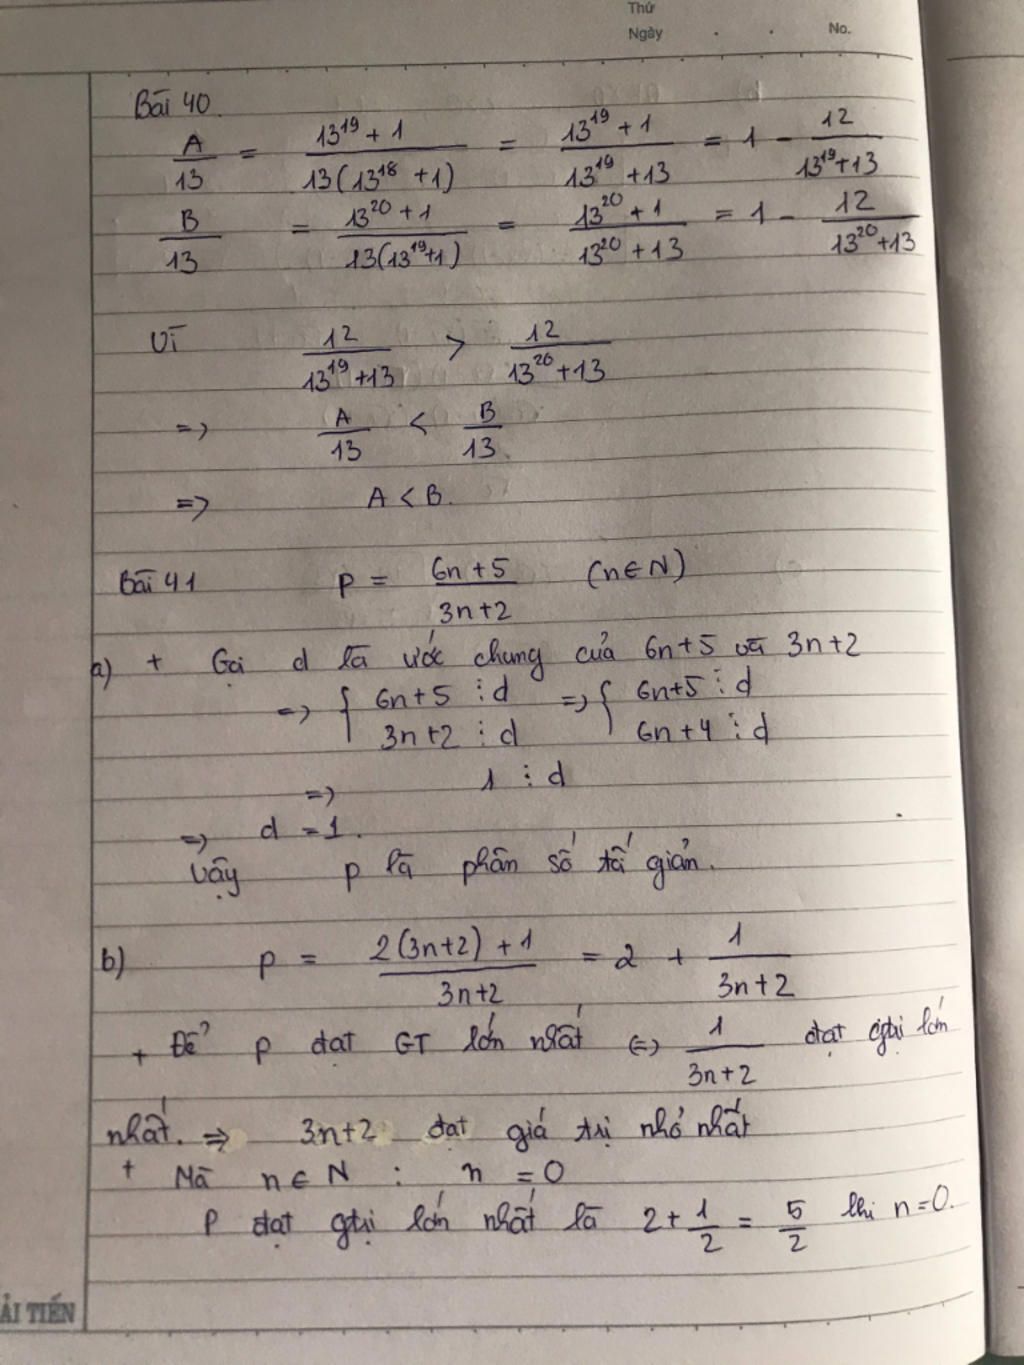 Thứ
Ngày . . No.
Bài 40.
A/13 = (13^19 + 1)/(13(13^18 + 1)) = (13^19 + 1)/(13^19 + 13) = 1 - 12/(13^19 + 13)
B/13 = (13^20 + 1)/(13(13^19 + 1)) = (13^20 + 1)/(13^20 + 13) = 1 - 12/(13^20 + 13)
Vì 12/(13^19 + 13) > 12/(13^20 + 13)
=> A/13 < B/13
=> A < B.
Bài 41 P = (6n + 5)/(3n + 2) (n ∈ N)
a) + Gọi d là ước chung của 6n+5 và 3n+2
=> { 6n+5 ⋮ d => { 6n+5 ⋮ d
3n+2 ⋮ d 6n+4 ⋮ d
=> 1 ⋮ d
=> d = 1.
Vậy P là phân số tối giản.
b) P = (2(3n+2) + 1)/(3n+2) = 2 + 1/(3n+2)
+ Để P đạt GT lớn nhất <=> 1/(3n+2) đạt gtrị lớn
nhất. => 3n+2 đạt giá trị nhỏ nhất
+ Mà n ∈ N : n = 0
P đạt gtrị lớn nhất là 2 + 1/2 = 5/2 khi n = 0.
ẢI TIẾN